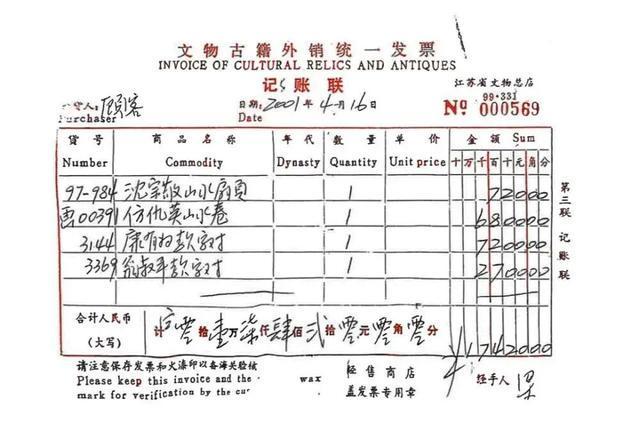 文物古籍外销统一发票
INVOICE OF CULTURAL RELICS AND ANTIQUES
记账联
江苏省文物总店
99·331
顾客
日期: 2001年4月16
№ 000569
Purchaser Date
货号 商品名称 年代 数量 单价 金额 Sum
Number Commodity Dynasty Quantity Unit price 十万千百十元角分
97-984 沈宗敬山水扇页 1 72000
00391 仿仇英山水卷 1 680000
3144 康有为款字对 1 720000
3369 翁叔平款字对 1 270000
第三联 记账联
合计人民币 计 零拾壹万柒仟肆佰贰拾零元零角零分 ¥1742000
(大写)
请注意保存发票和火漆印以备海关检核 经售商店 经手人
Please keep this invoice and the wax 盖发票专用章
mark for verification by the cu